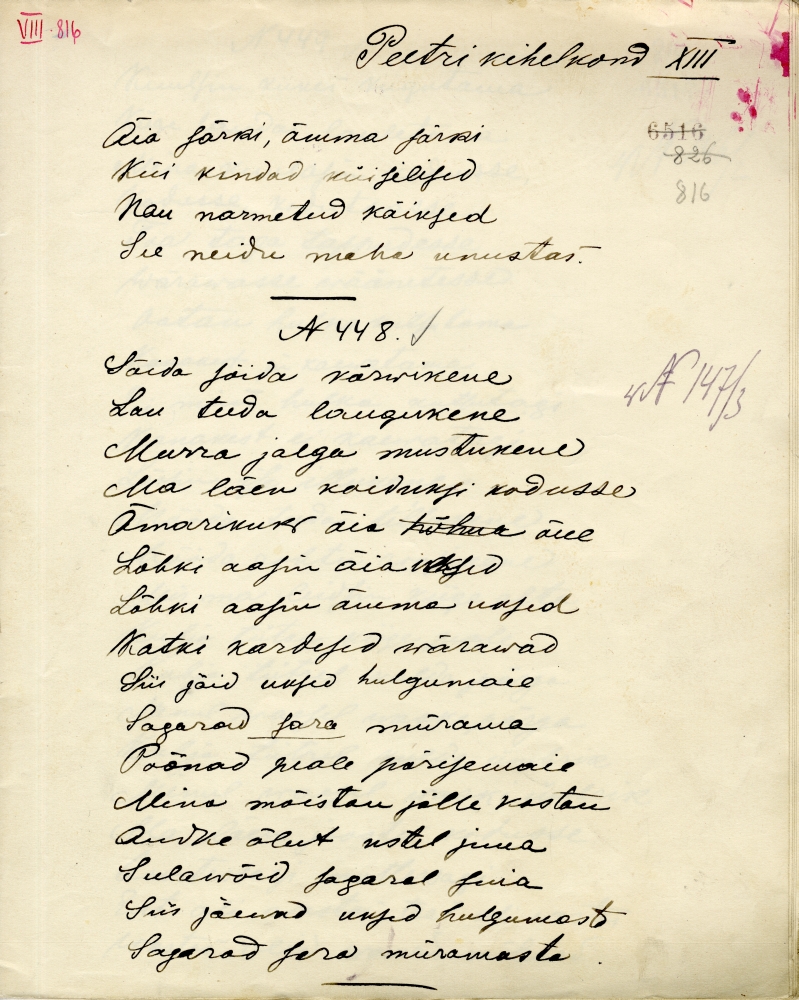 VIII 816
Peetri kihelkond XIII
6516
826
816
Äia särki, ämma särki
Küi kindad küiselised
Nau narmetud käiksed
See neidu maha unustas.
№ 448.
Sõida sõida kõrwikene
Lau teeda laugukene
Murra jalga mustukene
Ma läen koiduksi kodusse
Ämarikuks äia õue
Lõhki aasin äia uksed
Lõhki aasin ämma uksed
Katki kardesed wärawad
Siis jäid uksed hulgumaie
Sagarad sara mürama
Pöönad peale pärisemaie
Mina mõistan jälle kostan
Andke õlut ustel juua
Sulawõid sagaral süia
Siis jäewad uksed hulgumast
Sagarad sara müramasta.
№ 147/3